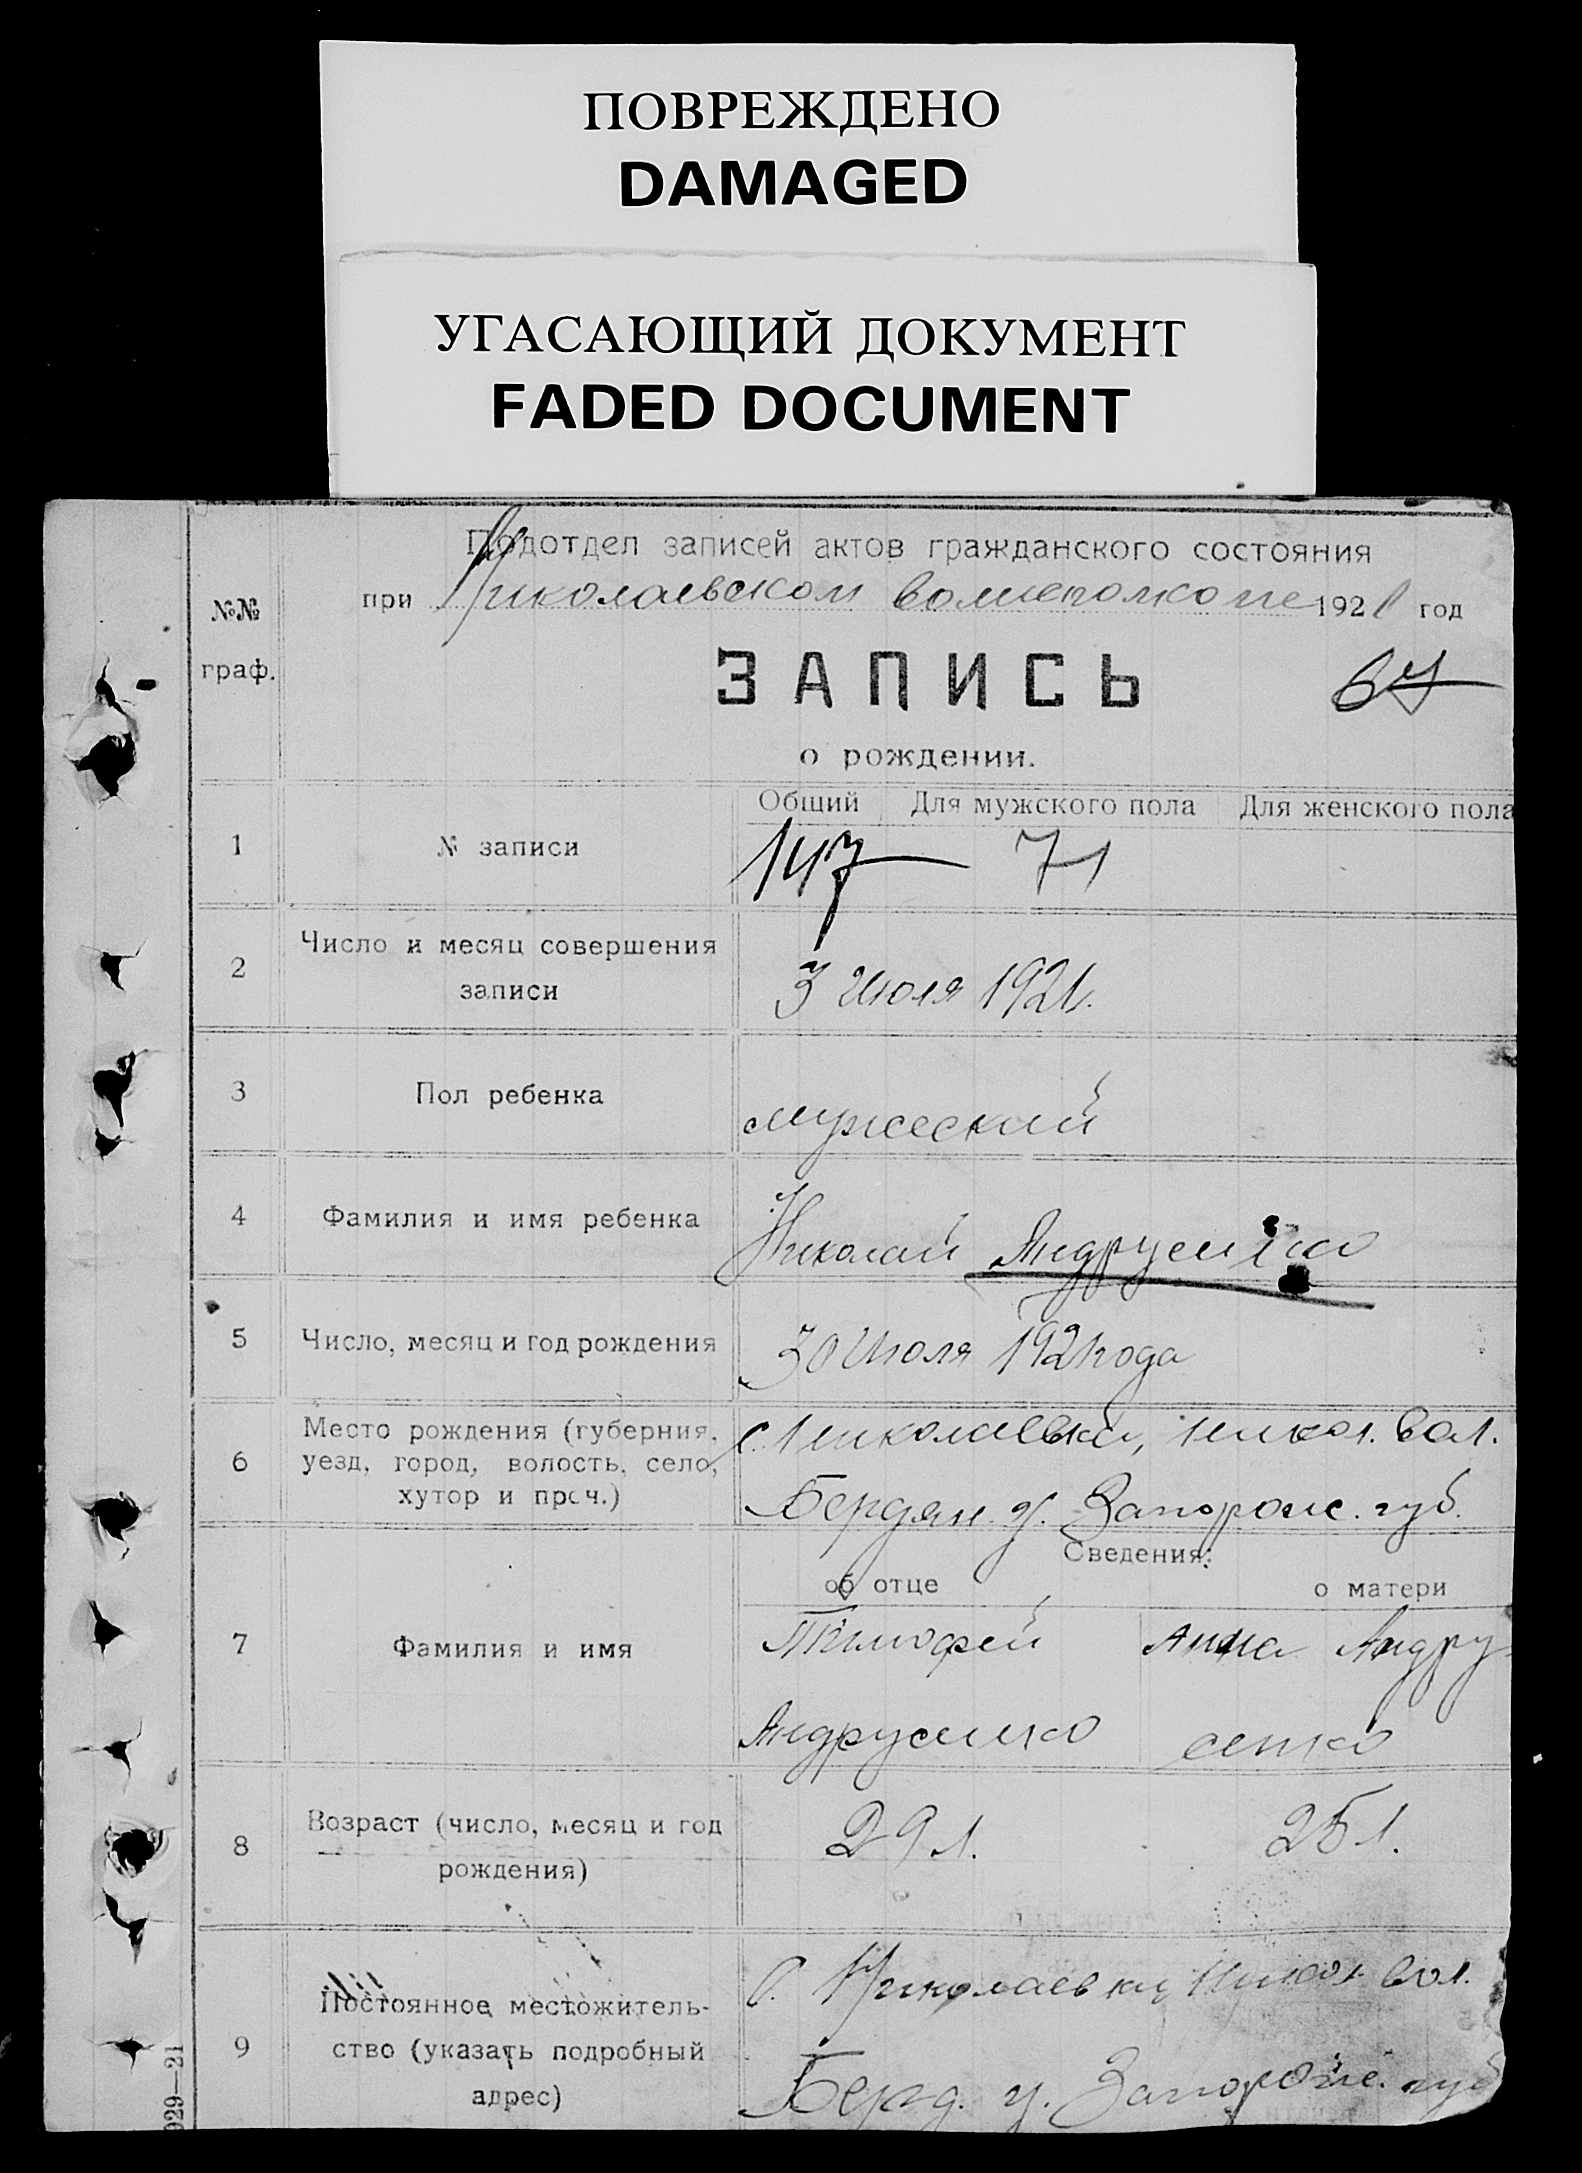 ПОВРЕЖДЕНО
DAMAGED
УГАСАЮЩИЙ ДОКУМЕНТ
FADED DOCUMENT
Подотдел записей актов гражданского состояния
при Николаевском волисполкоме 1921 год
№№ граф.
ЗАПИСЬ
67
о рождении.
Общий Для мужского пола Для женского пола
1 № записи 147 71
2 Число и месяц совершения записи 3 Июля 1921.
3 Пол ребенка мужеский
4 Фамилия и имя ребенка Николай Андрусенко
5 Число, месяц и год рождения 30 Июля 1921 года
6 Место рождения (губерния, с. Николаевки, Никол. вол.
уезд, город, волость, село,
хутор и проч.) Бердян. у. Запорож. губ.
Сведения:
об отце о матери
7 Фамилия и имя Тимофей Анна Андру
Андрусенко сенко
8 Возраст (число, месяц и год 29 л. 25 л.
рождения)
9 Постоянное местожитель- С. Николаевки Никол. вол.
ство (указать подробный
адрес) Берд. у. Запорож. губ
929—21